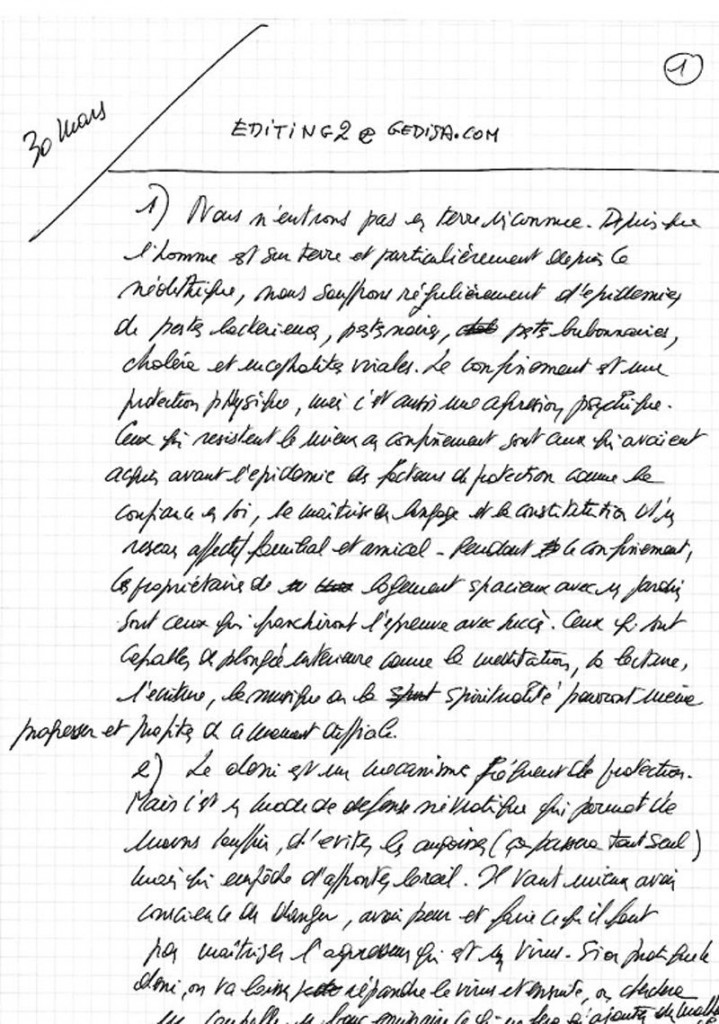 1
30 mars
EDITING2@GEDISA.COM
1) Nous n'entrons pas en terre inconnue. Depuis que
l'homme est sur terre et particulièrement depuis le
néolithique, nous souffrons régulièrement d'epidemies
de pestes bacteriennes, pestes noires, pestes bubonnaires,
choléra et encephalites virales. Le confinement est une
protection physique, mais c'est aussi une agression psychique.
Ceux qui resistent le mieux au confinement sont ceux qui avaient
acquis avant l'epidemie des facteurs de protection comme la
confiance en soi, la maitrise du langage et la constitution d'un
reseau affectif familial et amical. Pendant le confinement,
les propriétaires de logement spacieux avec un jardin
sont ceux qui franchiront l'épreuve avec succès. Ceux qui sont
capables de plongée interieure comme la meditation, la lecture,
l'ecriture, la musique ou la spiritualité pourront meme
progresser et profiter de ce moment difficile.
2) Le deni est un mecanisme fréquent de protection.
Mais c'est un mode de defense névrotique qui permet de
moins souffrir, d'eviter les angoisses (ça passera tout seul)
mais qui empêche d'affronter le reel. Il vaut mieux avoir
conscience du danger, avoir peur et faire ce qu'il faut
pour maitriser l'agresseur qui est un virus. Si on pratique le
deni, on va laisser répandre le virus et ensuite, on cherchera
un coupable, un bouc emissaire ce qui ne fera qu'ajouter du malheur